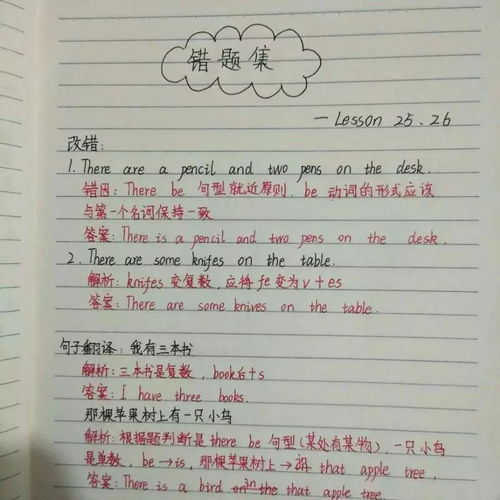 错题集
— Lesson 25、26
改错：
1. There are a pencil and two pens on the desk.
错因：There be 句型就近原则，be 动词的形式应该
与第一个名词保持一致
答案：There is a pencil and two pens on the desk.
2. There are some knifes on the table.
解析：knifes 变复数，应将 fe 变为 v + es
答案：There are some knives on the table.
句子翻译：我有三本书
解析：三本书是复数，book后+s
答案：I have three books.
那棵苹果树上有一只小鸟
解析：根据题判断是 there be 句型（某处有某物）一只小鸟
是单数，be→is，那棵苹果树上→ that apple tree，
答案：There is a bird in the that apple tree